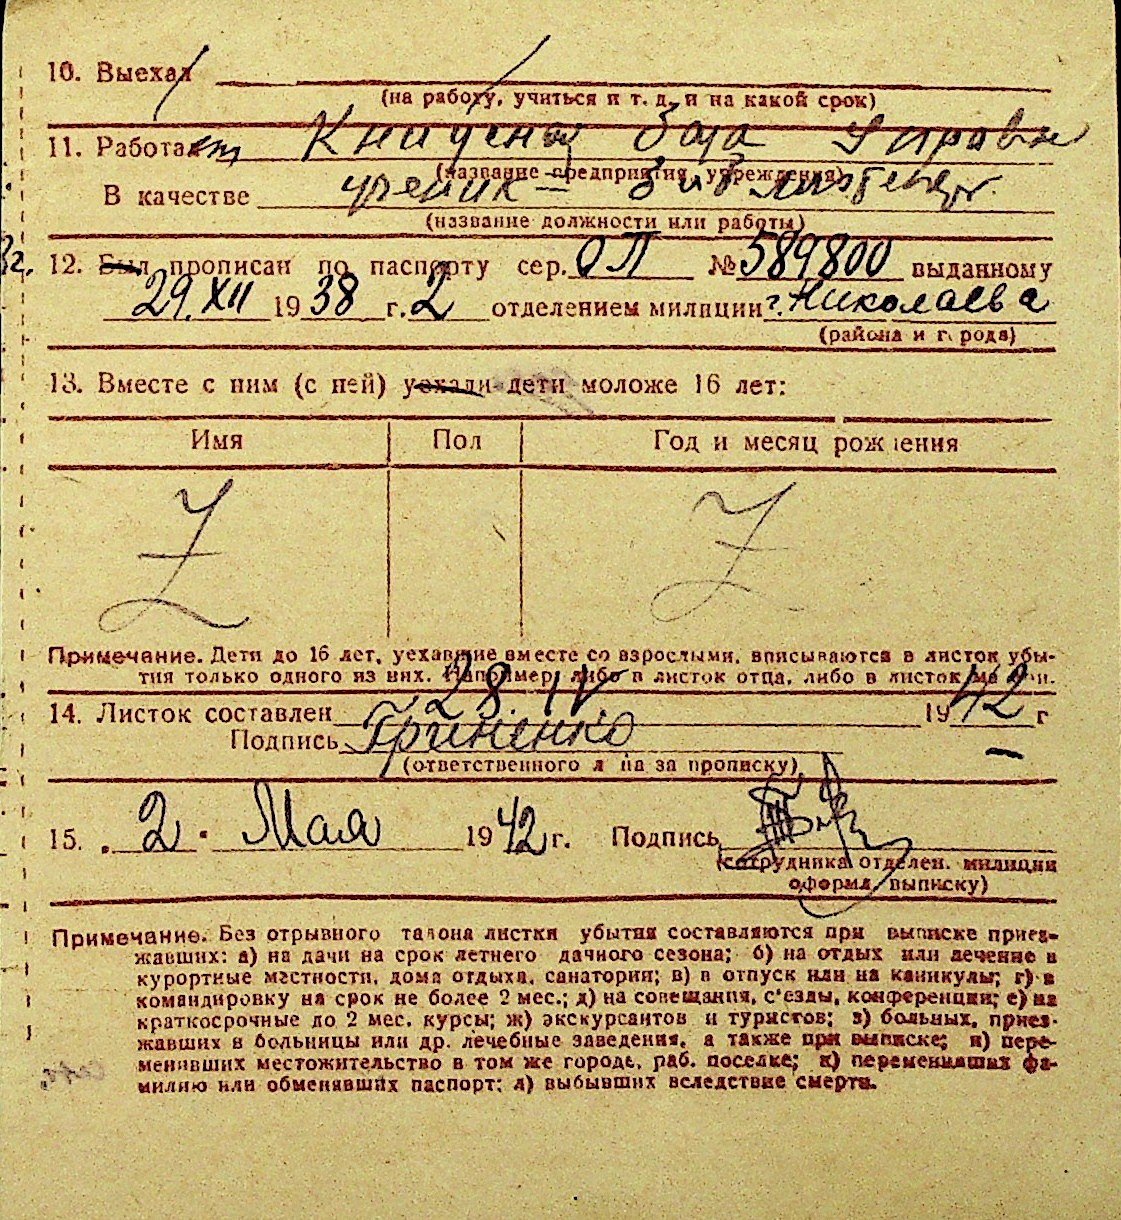 10. Выехал
(на работу, учиться и т. д. и на какой срок)
11. Работает Книжная база Управы
(название предприятия, учреждения)
В качестве ученик - библиотекарь
(название должности или работы)
12. Был прописан по паспорту сер. ОП № 589800 выданному
29.XII 1938 г. 2 отделением милиции г. Николаева
(района и города)
13. Вместе с ним (с ней) уехали дети моложе 16 лет:
Имя Пол Год и месяц рождения
Z Z
Примечание. Дети до 16 лет, уехавшие вместе со взрослыми, вписываются в листок убы-
тия только одного из них. Например, либо в листок отца, либо в листок матери.
14. Листок составлен 28. IV. 1942 г
Подпись Гриненко
(ответственного лица за прописку)
15. 2. Мая 1942 г. Подпись
(сотрудника отделен. милиции
оформл. выписку)
Примечание. Без отрывного талона листки убытия составляются при выписке приез-
жавших: а) на дачи на срок летнего дачного сезона; б) на отдых или лечение в
курортные местности, дома отдыха, санатории; в) в отпуск или на каникулы; г) в
командировку на срок не более 2 мес.; д) на совещания, с'езды, конференции; е) на
краткосрочные до 2 мес. курсы; ж) экскурсантов и туристов; з) больных, приез-
жавших в больницы или др. лечебные заведения, а также при выписке; и) пере-
менивших местожительство в том же городе, раб. поселке; к) переменивших фа-
милию или обменявших паспорт; л) выбывших вследствие смерти.